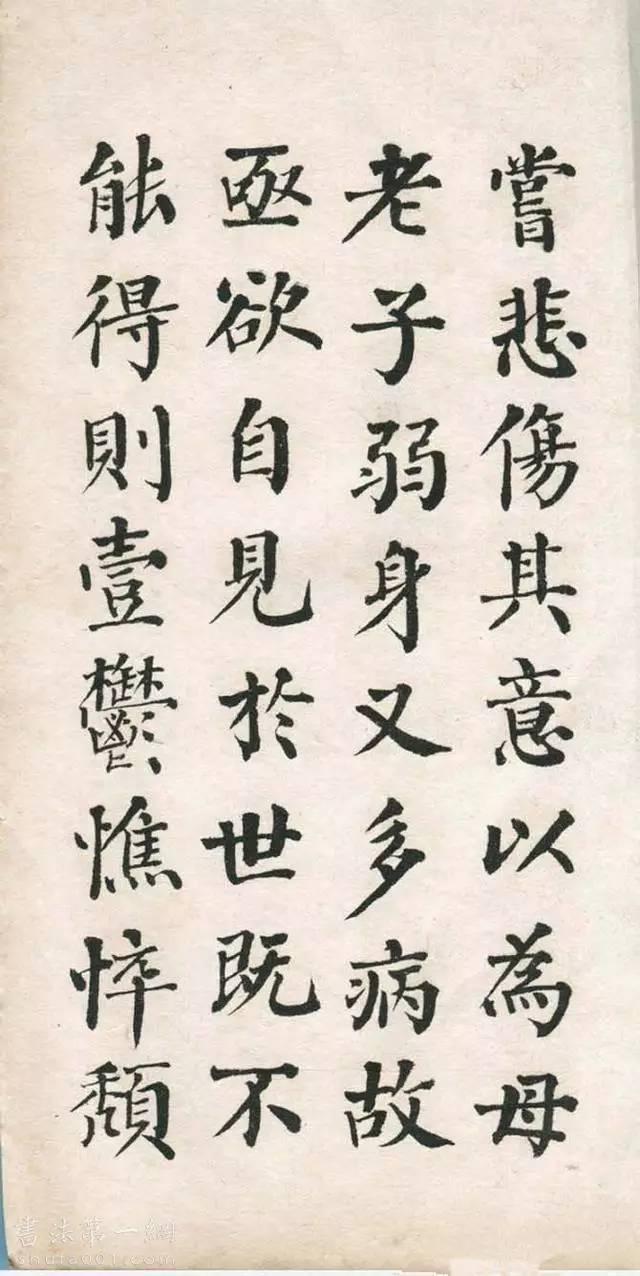 嘗悲傷其意以為母
老子弱身又多病故
亟欲自見於世既不
能得則壹鬱憔悴頹
書法第一網
shufa001.com